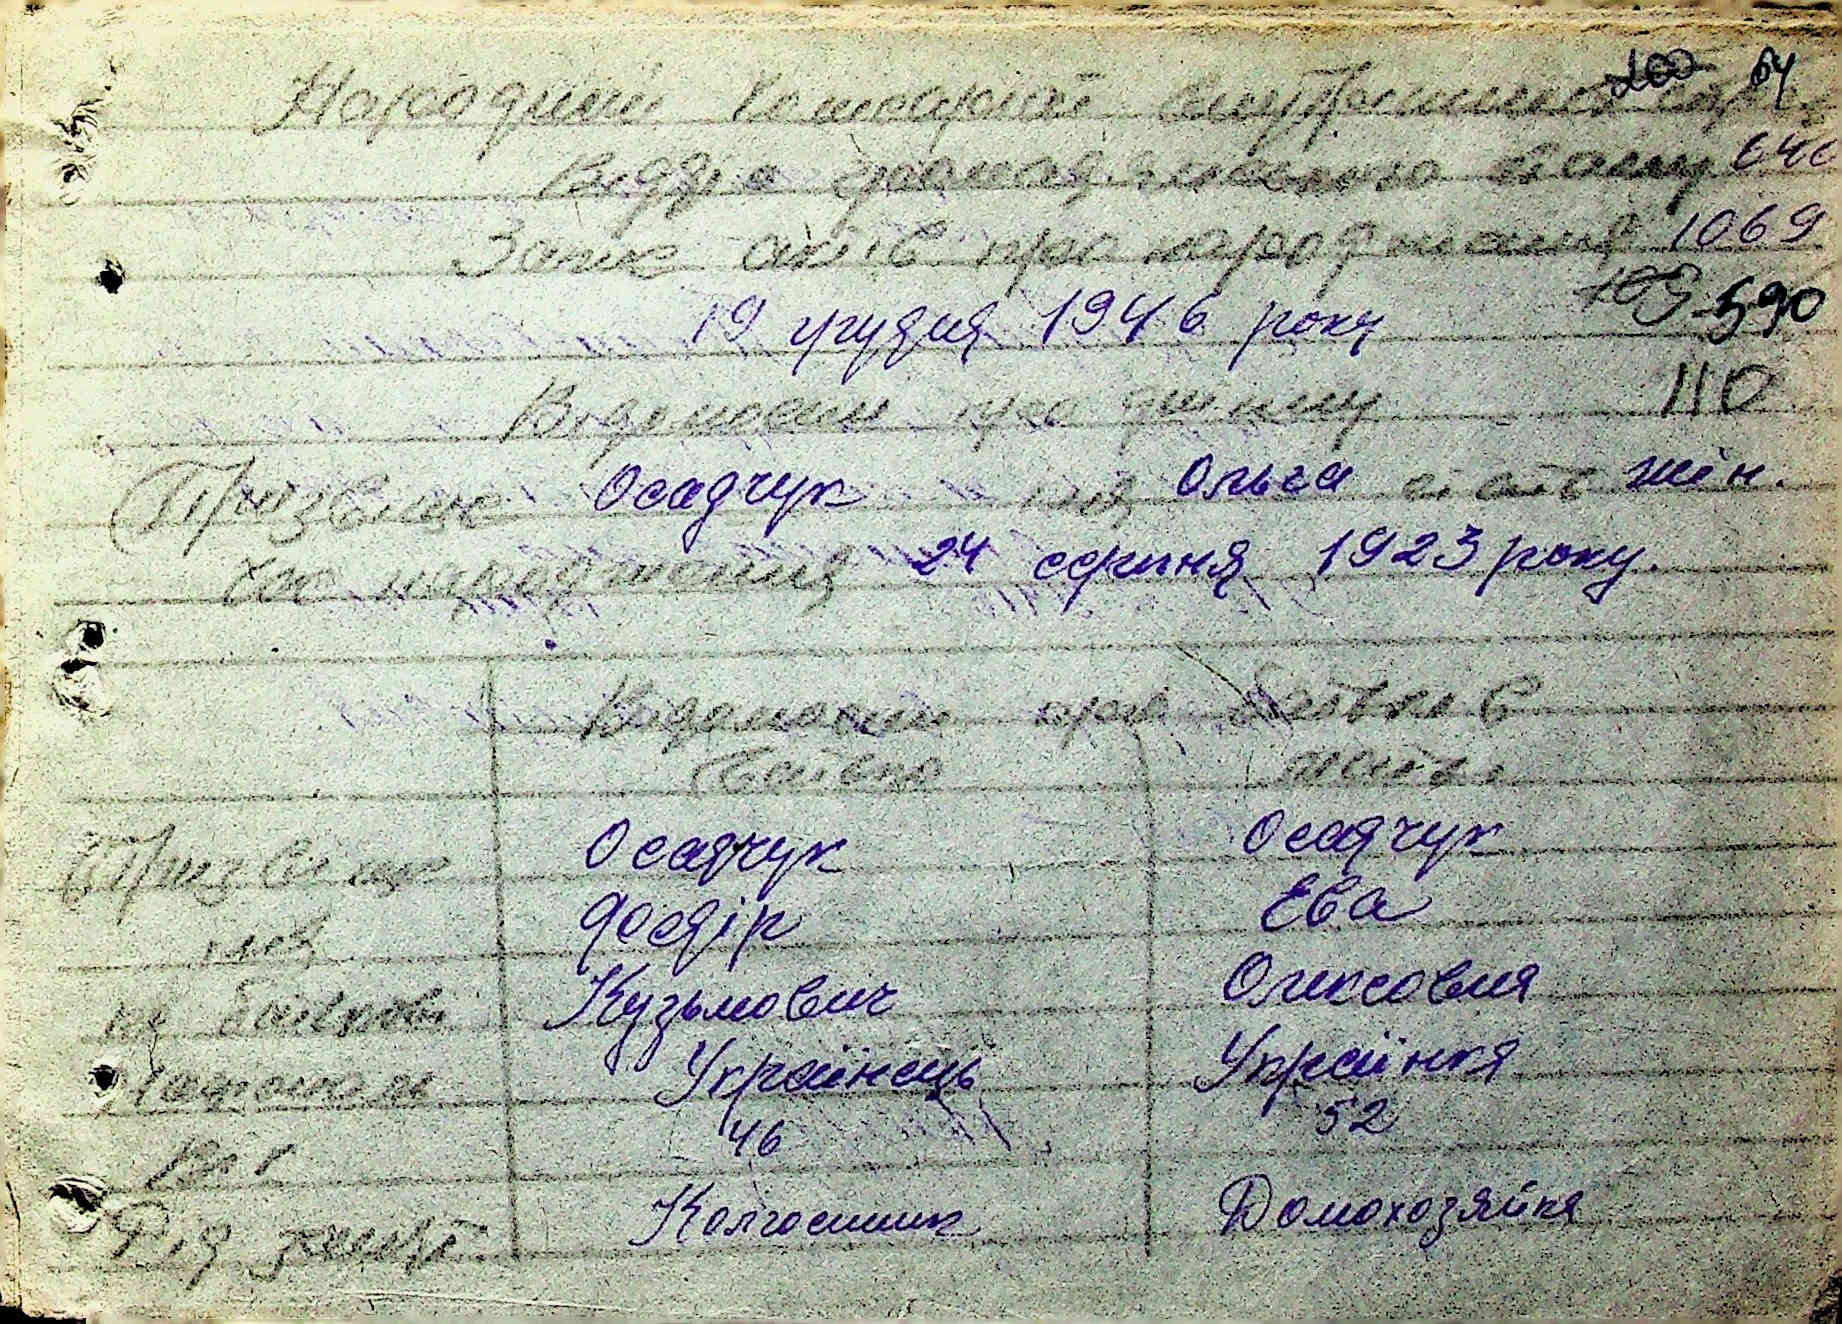 Народний комісаріат внутрішніх 64
Відділ громадянського стану
Запис актів про народження 1069
19 грудня 1946 року 590
Відомости про дитину 110
Прізвище Осадчук імя Ольга стать жін.
Час народження 24 серпня 1923 року.
Відомости про батьків
батько мати
Прізвище Осадчук Осадчук
імя Фосдір Ева
по батькові Кузьмович Олексовня
Національ Українець Українка
Вік 46 52
Рід занят. Колгоспник Домохозяйка